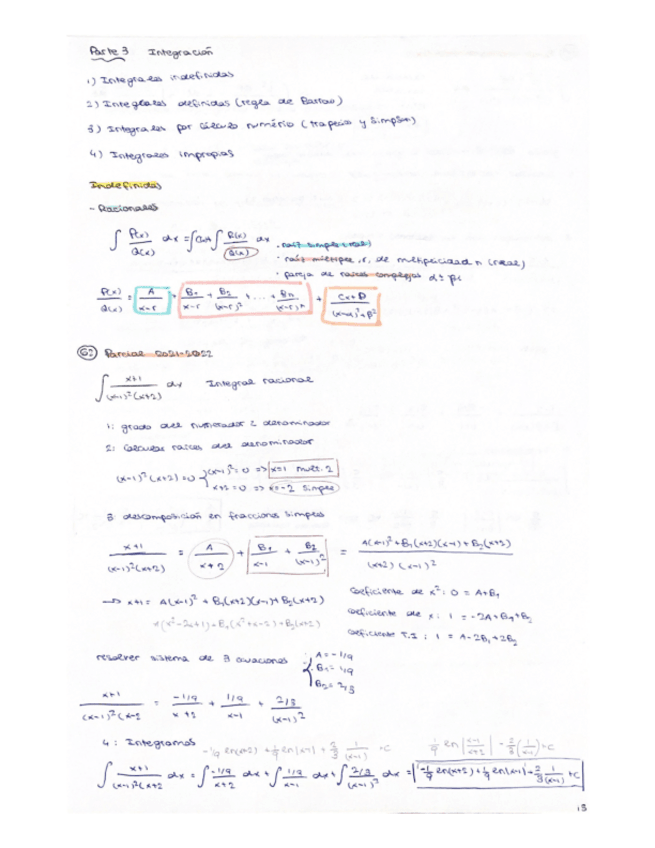 Parte 3 Integración
1) Integrales indefinidas
2) Integrales definidas (regla de Barrow)
3) Integrales por cálculo numérico (trapecio y Simpson)
4) Integrales impropias
Indefinidas
- Racionales
∫ P(x)/Q(x) dx = ∫ C(x) + ∫ R(x)/Q(x) dx
· raíz simple (real)
· raíz múltiple, r, de multiplicidad n (real)
· pareja de raíces complejas α ± βi
P(x)/Q(x) = A/(x-r) + B₁/(x-r) + B₂/(x-r)² + ... + Bn/(x-r)ⁿ + (Cx+D)/((x-α)²+β²)
G2 Parcial 2021-2022
∫ (x+1)/((x-1)²(x+2)) dx Integral racional
1: grado del numerador < denominador
2: Calcular raíces del denominador
(x-1)²(x+2)=0 { (x-1)²=0 => x=1 mult. 2
x+2=0 => x=-2 simple
3 descomposición en fracciones simples
(x+1)/((x-1)²(x+2)) = A/(x+2) + B₁/(x-1) + B₂/(x-1)² = (A(x-1)²+B₁(x+2)(x-1)+B₂(x+2))/((x+2)(x-1)²)
=> x+1 = A(x-1)² + B₁(x+2)(x-1) + B₂(x+2)
A(x²-2x+1)+B₁(x²+x-2)+B₂(x+2)
Coeficiente de x²: 0 = A+B₁
Coeficiente de x: 1 = -2A+B₁+B₂
Coeficiente T.I: 1 = A-2B₁+2B₂
resolver sistema de 3 ecuaciones { A = -1/9
B₁ = 1/9
B₂ = 2/3
(x+1)/((x-1)²(x-2 = (-1/9)/(x+2) + (1/9)/(x-1) + (2/3)/(x-1)²
4: Integramos
-1/9 ln(x+2) + 1/9 ln|x-1| + 2/3 1/(x-1) +C
1/9 ln|(x-1)/(x+2)| - 2/3 (1/(x-1)) +C
∫ (x+1)/((x-1)²(x+2 dx = ∫ (-1/9)/(x+2) dx + ∫ (1/9)/(x-1) dx + ∫ (2/3)/(x-1)² dx = -1/9 ln(x+2) + 1/9 ln|x-1| - 2/3 1/(x-1) +C